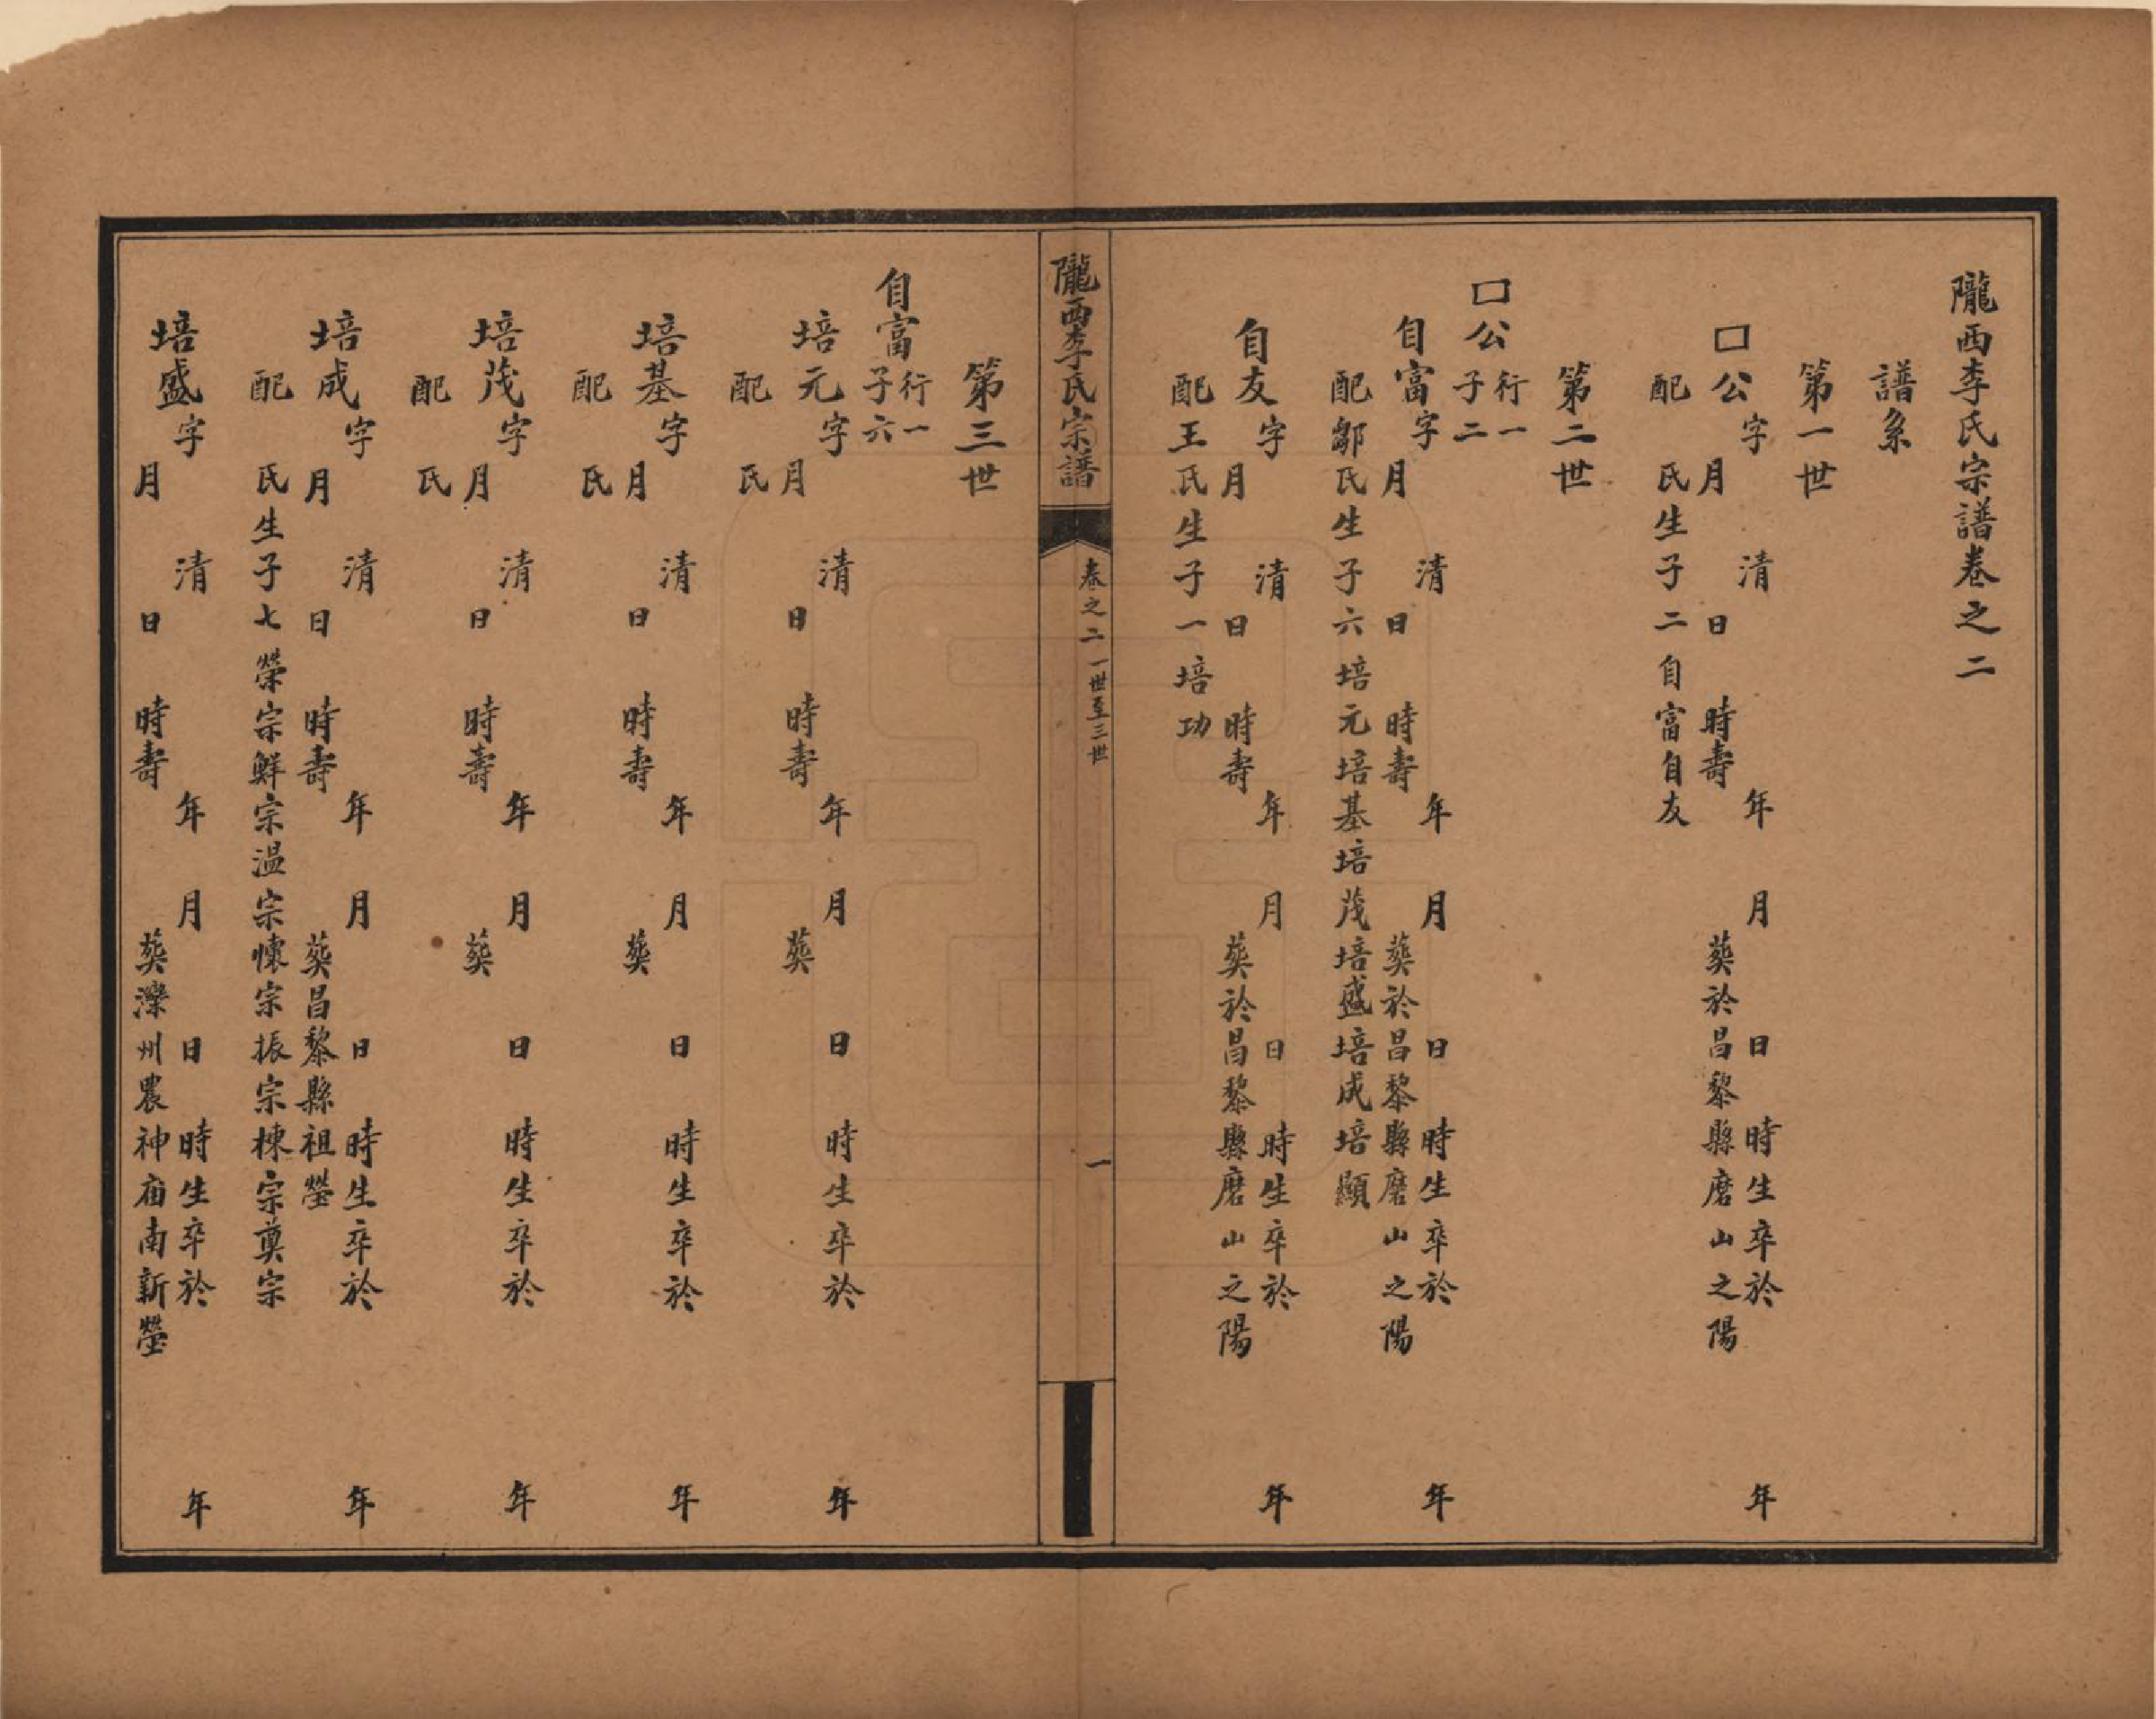 隴西李氏宗譜卷之二
譜系
第一世
口公字 清 年 月 日 時生卒於 年
月 日 時壽 葬於昌黎縣磨山之陽
配 氏生子二自富自友
第二世
口公行一
子二
自富字 清 年 月 日 時生卒於 年
月 日 時壽 葬於昌黎縣磨山之陽
配鄒氏生子六培元培基培茂培盛培成培顯
自友字 清 年 月 日 時生卒於 年
月 日 時壽 葬於昌黎縣磨山之陽
配王氏生子一培功
隴西李氏宗譜 卷之二 一世至三世 一
第三世
自富行一
子六
培元字 清 年 月 日 時生卒於 年
月 日 時壽 葬
配 氏
培基字 清 年 月 日 時生卒於 年
月 日 時壽 葬
配 氏
培茂字 清 年 月 日 時生卒於 年
月 日 時壽 葬
配 氏
培成字 清 年 月 日 時生卒於 年
月 日 時壽 葬昌黎縣祖塋
配 氏生子七榮宗鮮宗溫宗懷宗振宗棟宗奠宗
培盛字 清 年 月 日 時生卒於 年
月 日 時壽 葬灤州農神庙南新塋